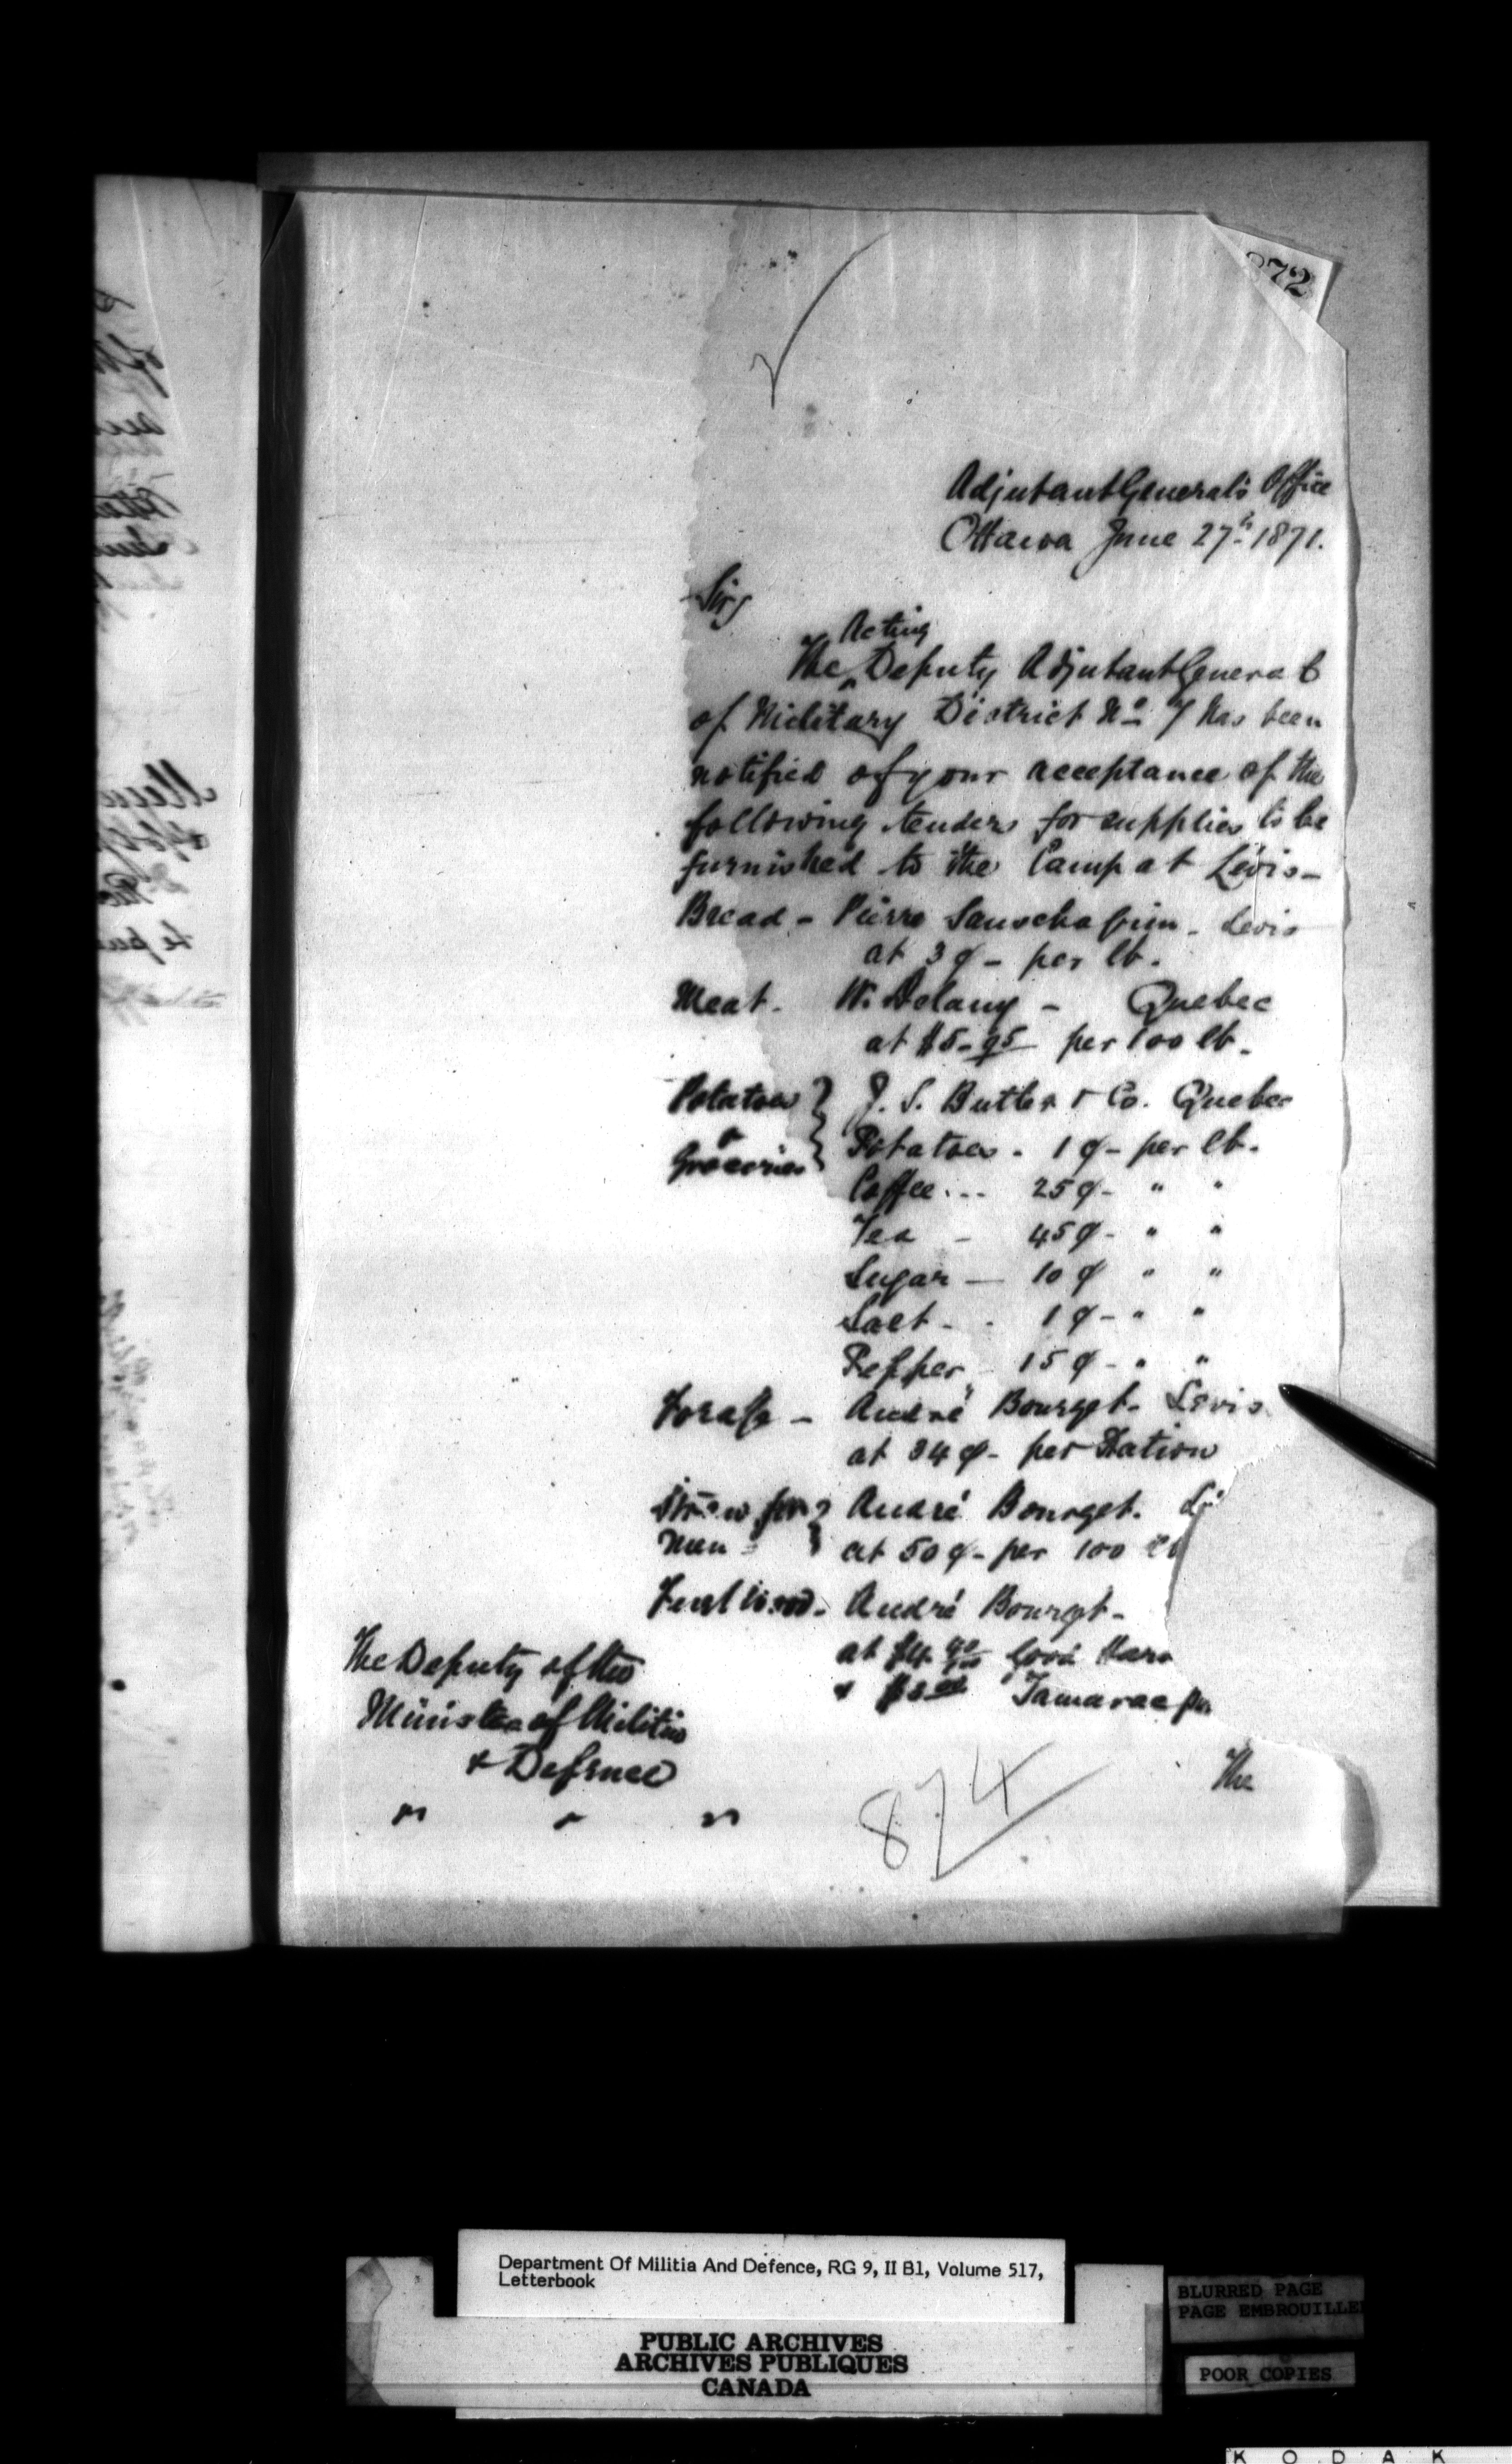 872
Adjutant General's Office
Ottawa June 27th 1871.
Sir,
Acting
The ^ Deputy Adjutant General
of Military District No 7 has been
notified of your acceptance of the
following tenders for supplies to be
furnished to the Camp at Lévis -
Bread - Pierre Levis
at 3¢ - per lb.
Meat. W. Delany - Quebec
at $5-95 per 100 lb.
Potatoes & Groceries } J. S. Butler & Co. Quebec
Potatoes. 1¢ - per lb.
Coffee... 25¢ - " "
Tea - 45¢ - " "
Sugar — 10¢ " "
Salt - . 1¢ - " "
Pepper 15¢ - " "
Forage - André Bourget - Levis.
at 34¢ - per Ration
Straw for Men } André Bourget.
at 50¢ - per 100
Fuel Wood - André Bourget -
at $4. Good
& Tamarac
The Deputy of the
Minister of Militia
& Defence
" " "
The
874
Department Of Militia And Defence, RG 9, II B1, Volume 517,
Letterbook
PUBLIC ARCHIVES
ARCHIVES PUBLIQUES
CANADA
BLURRED PAGE
PAGE EMBROUILLE
POOR COPIES
K O D A K